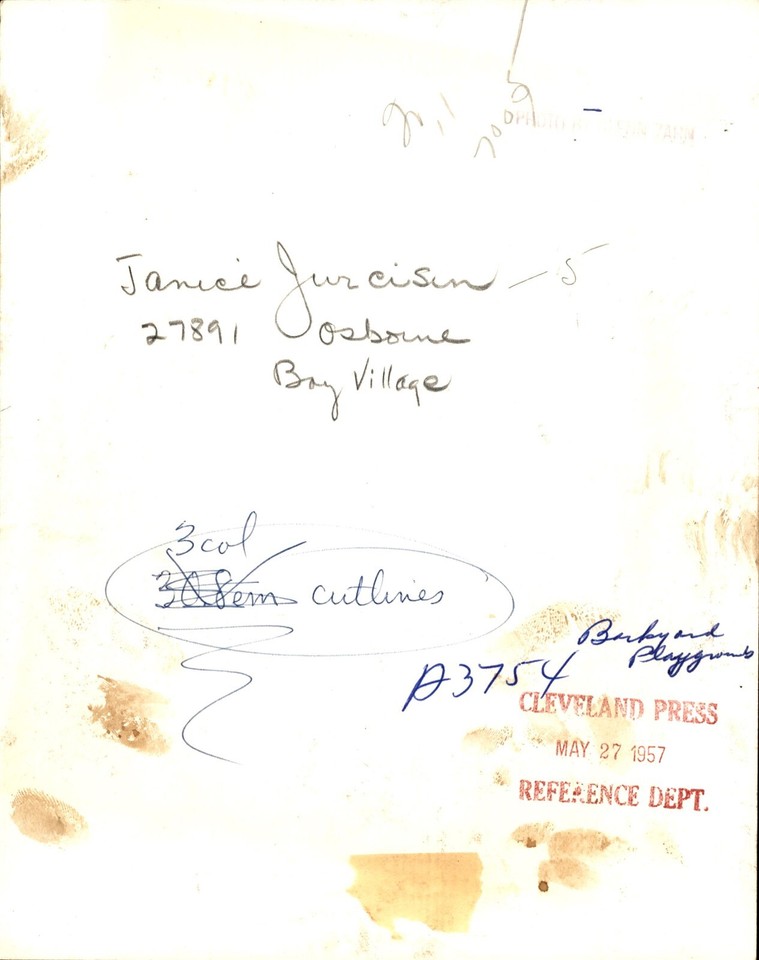 PHOTO
Janice Jurcisin — 5
27891 Osborne
Bay Village
3 col
cutlines
Backyard
Playgrounds
A3754
CLEVELAND PRESS
MAY 27 1957
REFERENCE DEPT.